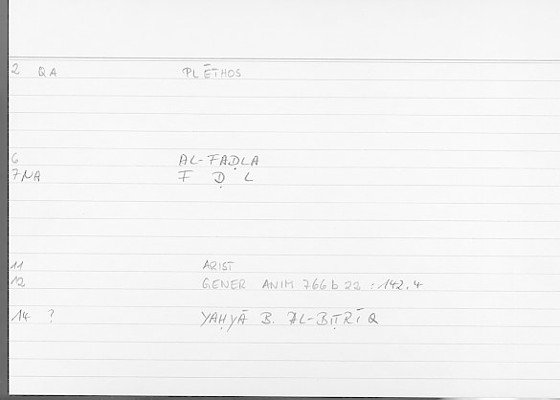 2 QA PLĒTHOS
6 AL-FAḌLA
7 NA F Ḍ L
11 ARIST
12 GENER ANIM 766 b 22 : 142.4
14 ? YAḤYĀ B. AL-BIṬRĪQ